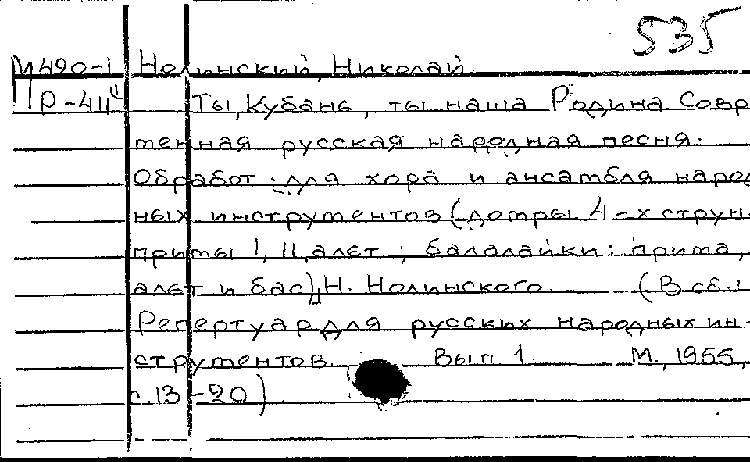 535
М490-1 Нолинский, Николай
Р-41" Ты, Кубань, ты наша Родина Совр
менная русская народная песня.
Обработ. для хора и ансамбля народ
ных инструментов (домры 4-х струн
примы I, II, альт; балалайки: прима,
альт и бас) Н. Нолинского. (В сб.:
Репертуар для русских народных ин-
струментов. Вып. 1. М., 1955,
с. 13-20)